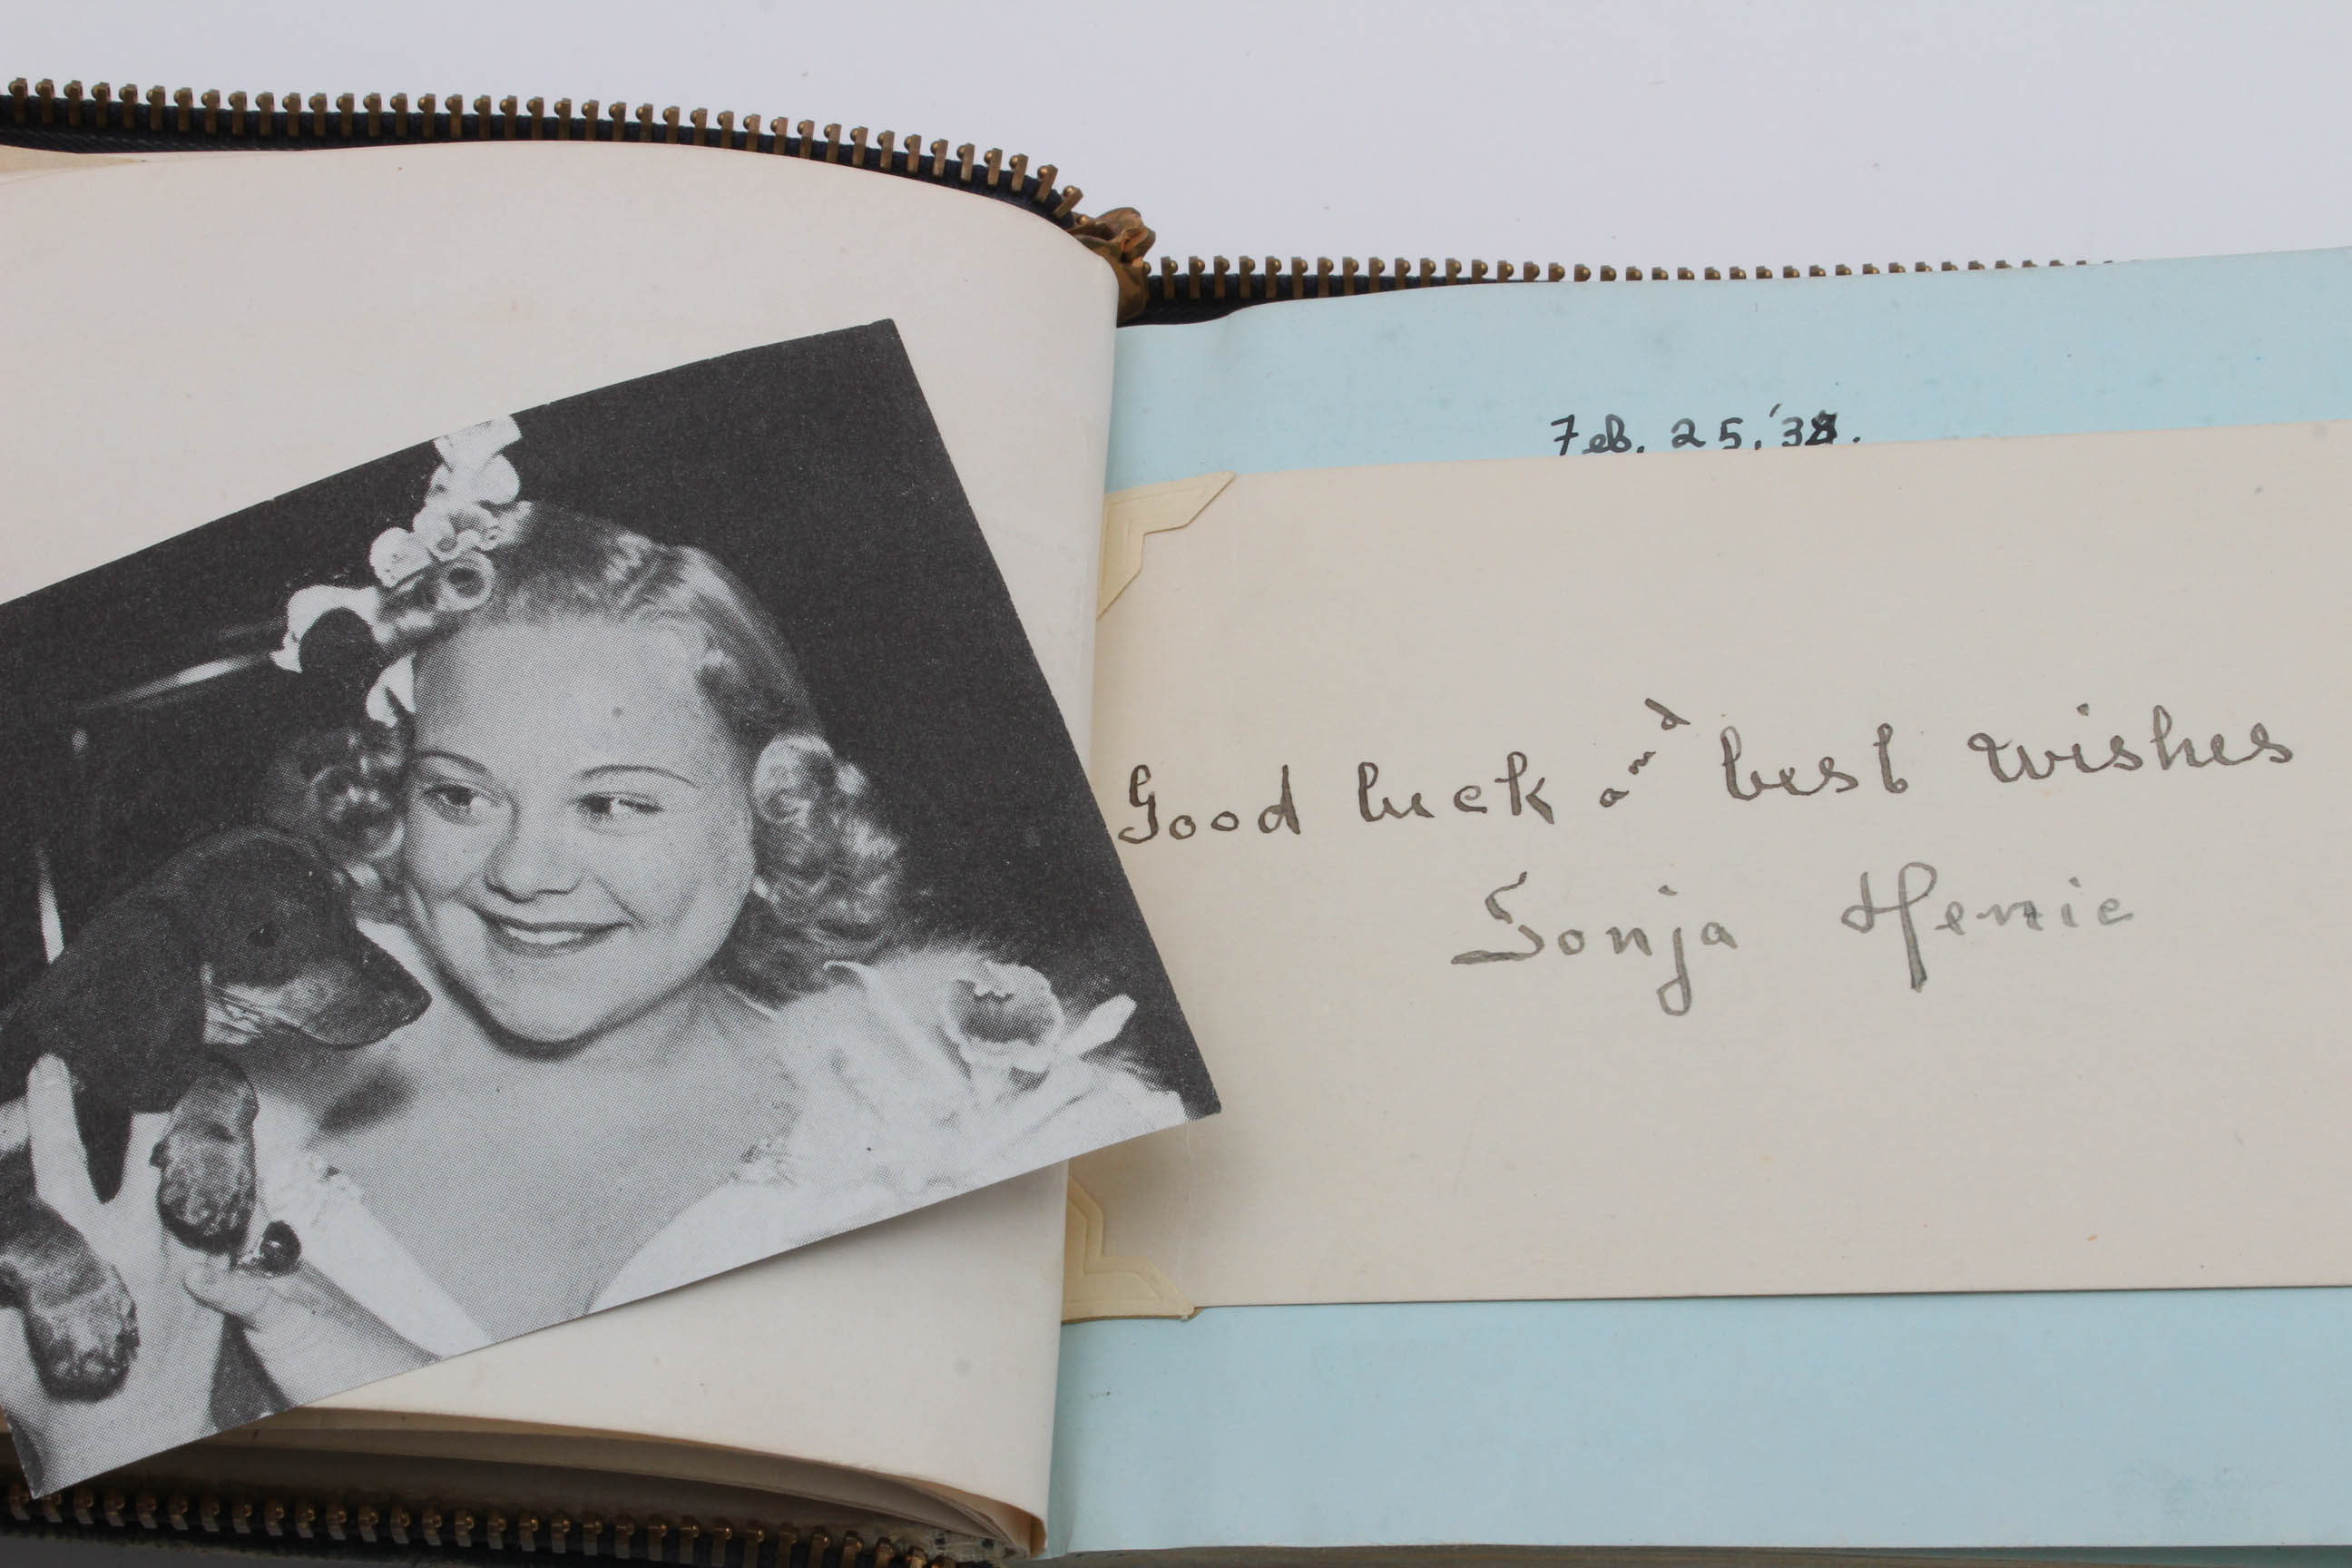 Feb. 25, '38.
Good luck and best wishes
Sonja Henie